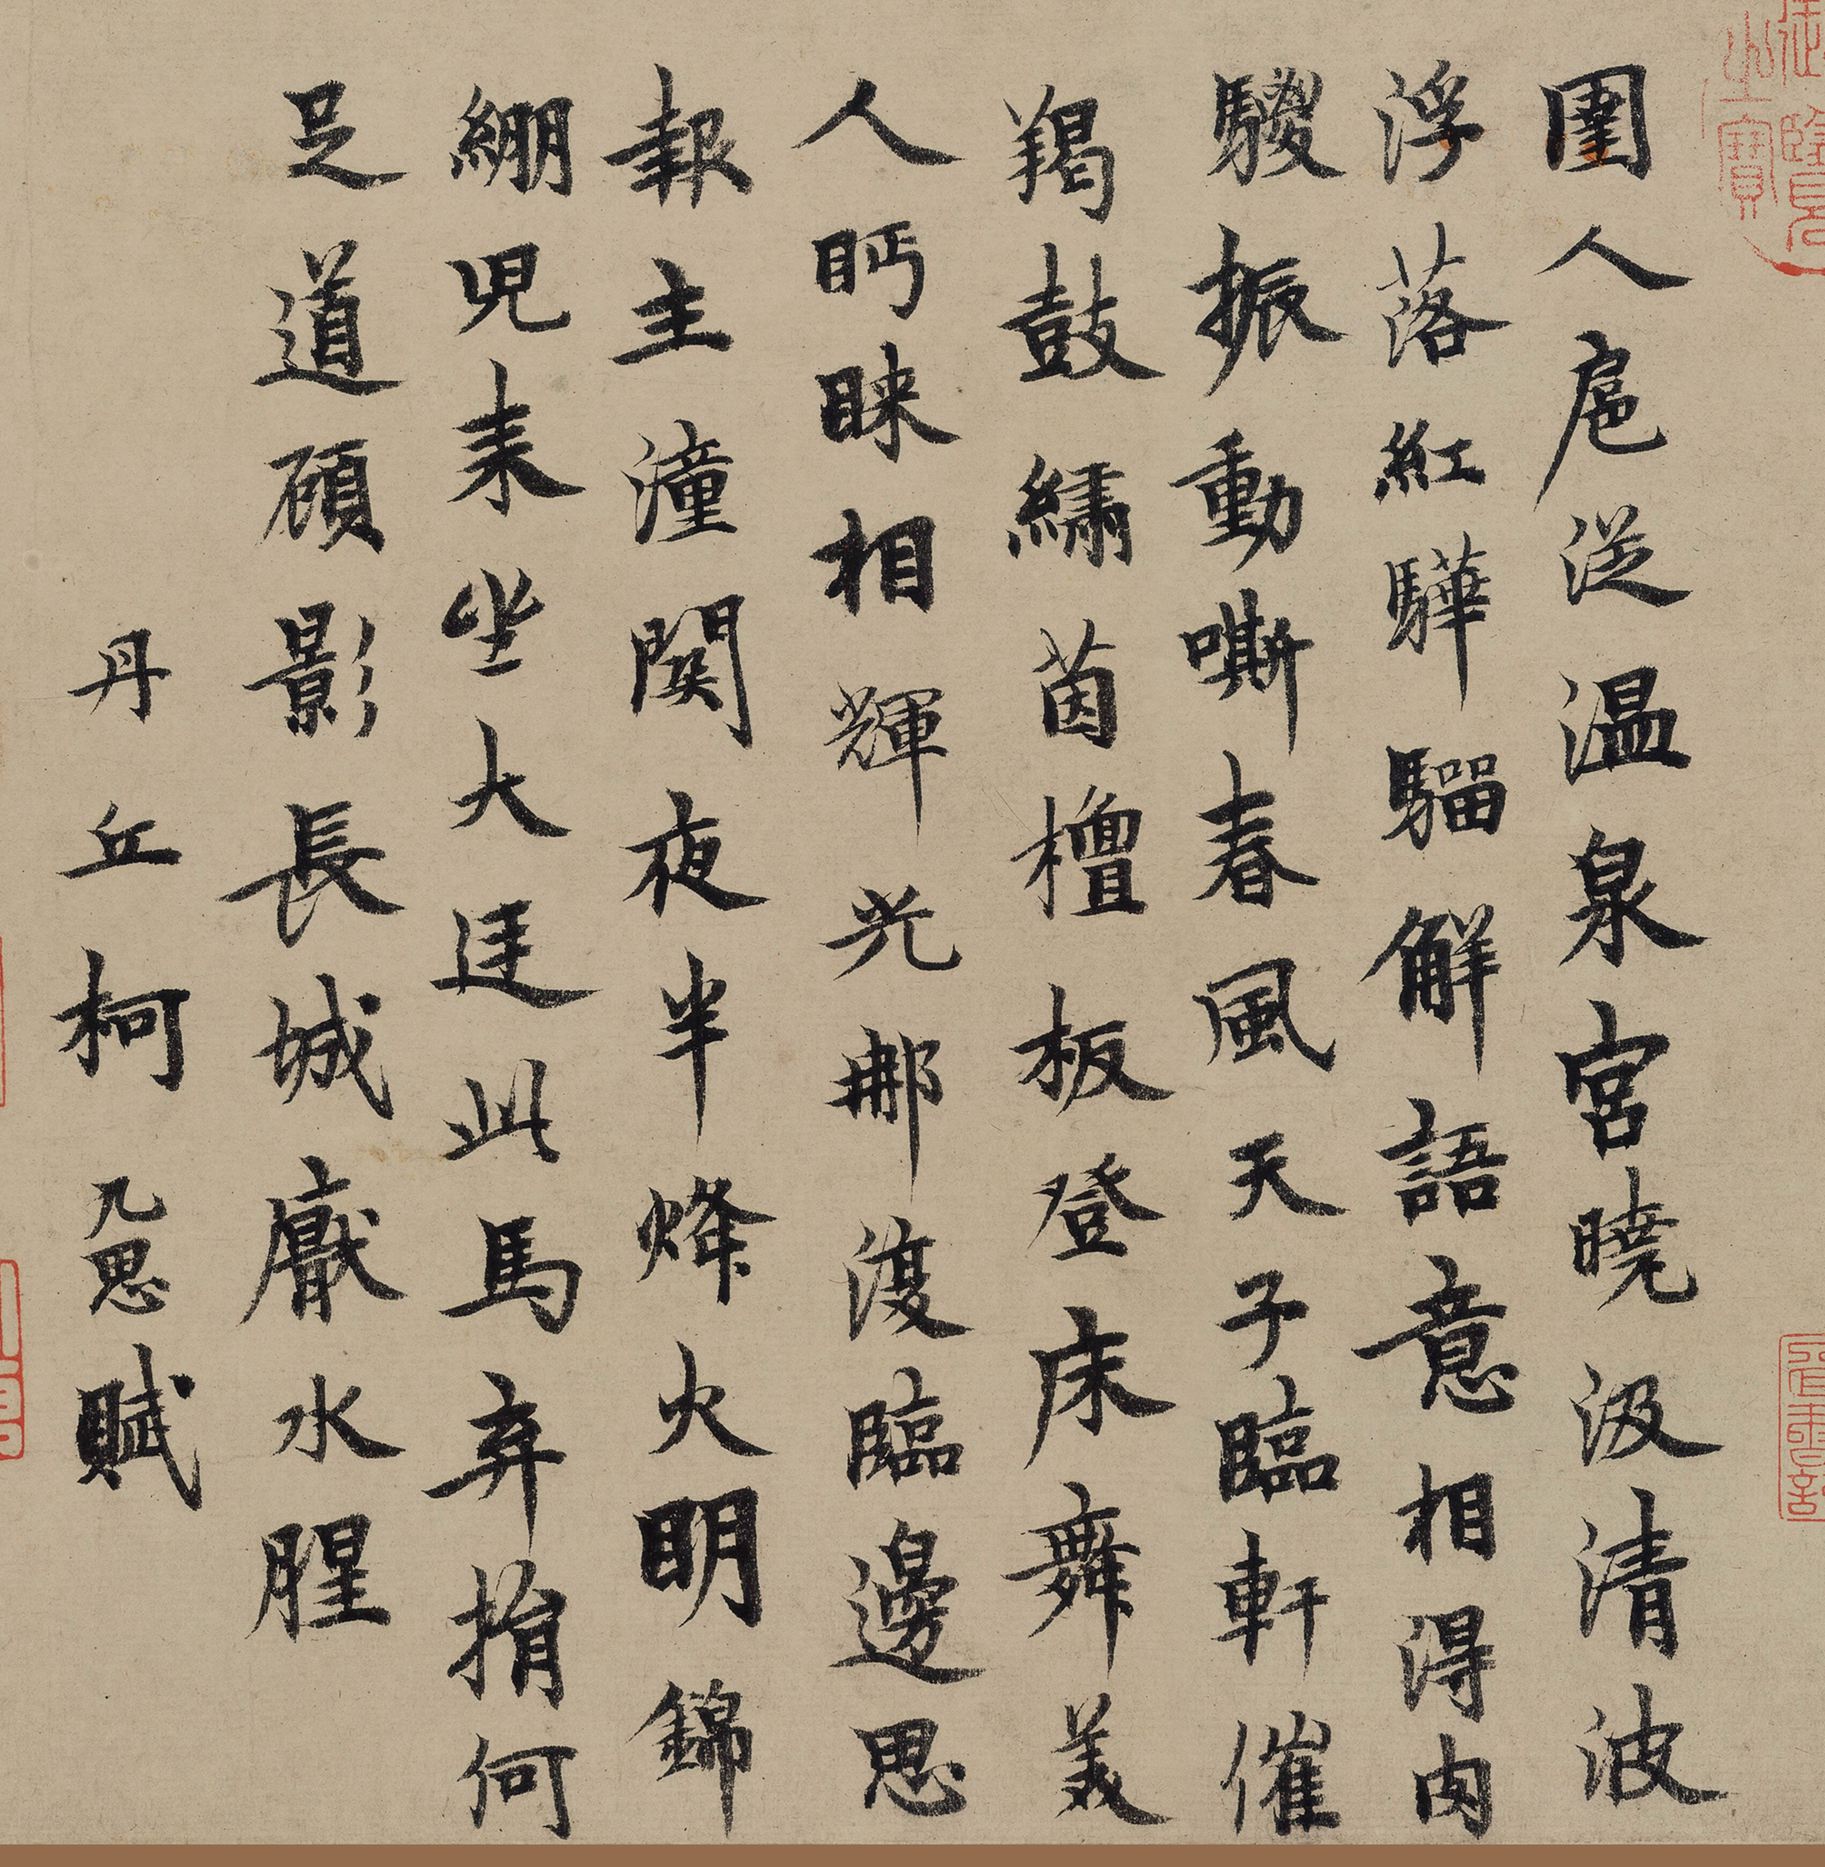 圉人扈從温泉宫曉汲清波
浮落紅驊騮解語意相得肉
騣振動嘶春風天子臨軒催
羯鼓繡茵檀板登床舞美
人眄睞相輝光那復臨邊思
報主潼関夜半烽火明錦
綳児来坐大廷此馬弃捐何
足道顧影長城厭水腥
丹丘柯九思賦